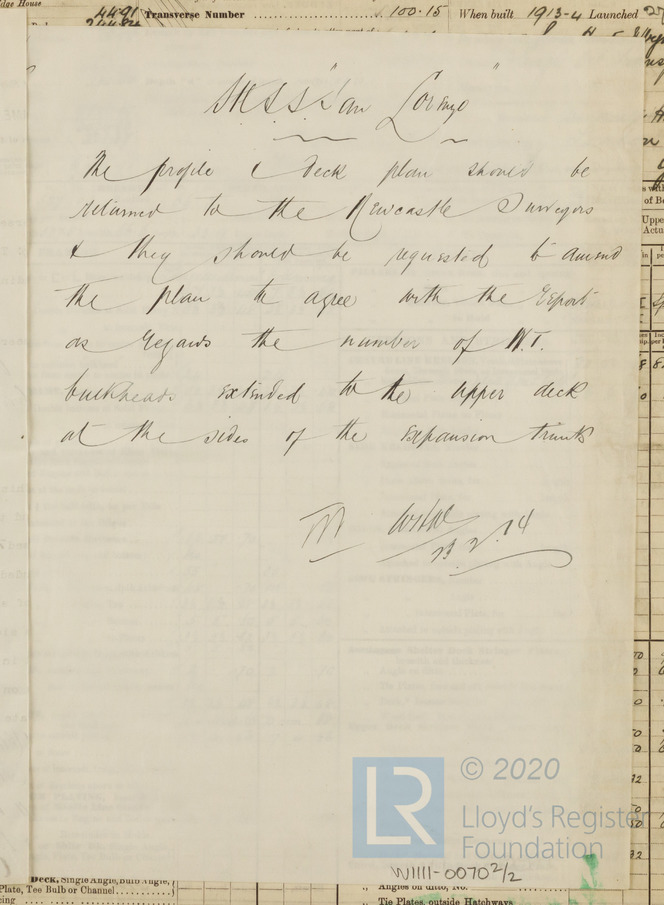 dge House
4491 Transverse Number 100·15 When built 1913-4 Launched
S.S. "San Lorenzo"
The profile & Deck plan should be
returned to the Newcastle Surveyors
& they should be requested to amend
the plan to agree with the Report
as regards the number of W.T.
bulkheads extended to the upper deck
at the sides of the expansion trunks
23.2.14
LR
© 2020
Lloyd's Register
Foundation
W1111-0070 2/2
Deck, Single Angle, Bulb Angle,
Plate, Tee Bulb or Channel
cing
„ Angles on ditto, No.
„ Tie Plates, outside Hatchways